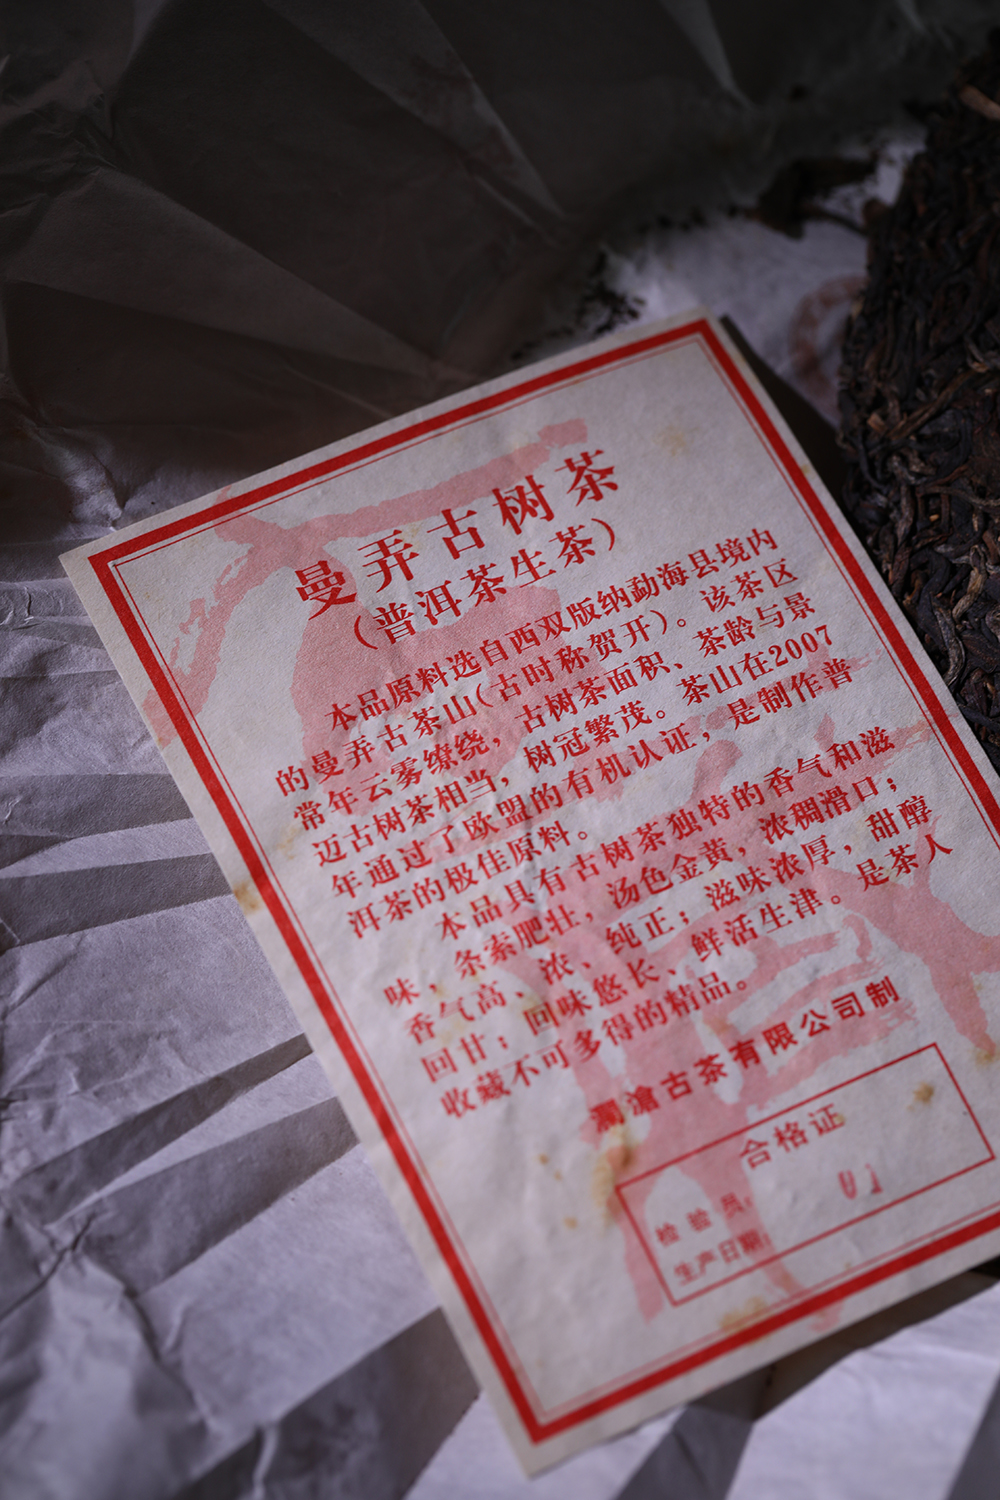 曼弄古树茶
（普洱茶生茶）
本品原料选自西双版纳勐海县境内
的曼弄古茶山（古时称贺开）。该茶区
常年云雾缭绕，古树茶面积、茶龄与景
迈古树茶相当，树冠繁茂。茶山在2007
年通过了欧盟的有机认证，是制作普
洱茶的极佳原料。
本品具有古树茶独特的香气和滋
味，条索肥壮，汤色金黄，浓稠滑口；
香气高、浓、纯正；滋味浓厚，甜醇
回甘；回味悠长、鲜活生津。是茶人
收藏不可多得的精品。
澜滄古茶有限公司制
合格证
检验员：01
生产日期：